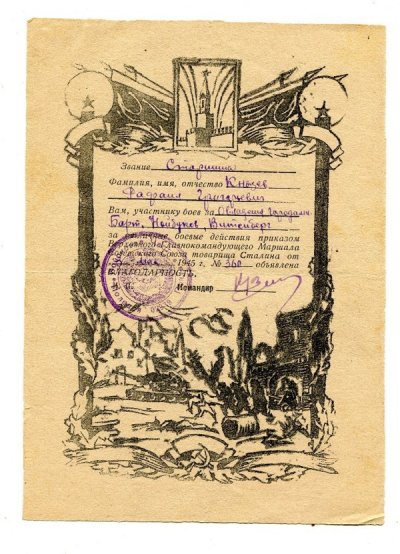 Звание Старшина
Фамилия, имя, отчество
Рафаил Григорьевич
Вам, участнику боев за Овладение городами
Барт, Нойбуков, Витенберг
за отличные боевые действия приказом
Верховного Главнокомандующего Маршала
Советского Союза товарища Сталина от
мая 1945 г. № 360 объявлена
БЛАГОДАРНОСТЬ.
Командир